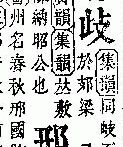 歧
集韻同岐
於郊梁
韻集韻𠀤敷
邢
納昭公也
州名春秋邢國